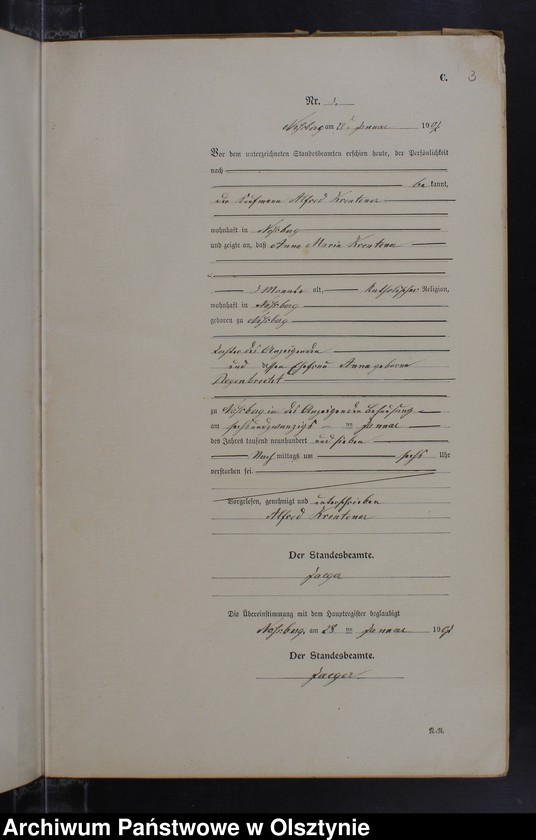 C. 3
Nr. 3.
Noßberg am 28ten Januar 1907
Vor dem unterzeichneten Standesbeamten erschien heute, der Persönlichkeit
nach
be kannt,
der Kaufmann Alfred
wohnhaft in Noßberg
und zeigte an, daß Anna Maria
3 Monate alt, katholischer Religion,
wohnhaft in Noßberg
geboren zu Noßberg
Tochter des Anzeigenden
und dessen Ehefrau Anna geborene
zu Noßberg in des Anzeigenden Behausung
am sechsundzwanzigs ten Januar
des Jahres tausend neunhundert und sieben
Nach mittags um sechs Uhr
verstorben sei.
Vorgelesen, genehmigt und unterschrieben
Alfred
Der Standesbeamte.
Jaeger
Die Übereinstimmung mit dem Hauptregister beglaubigt
Noßberg, am 28 ten Januar 1907
Der Standesbeamte.
Jaeger
Archiwum Państwowe w Olsztynie